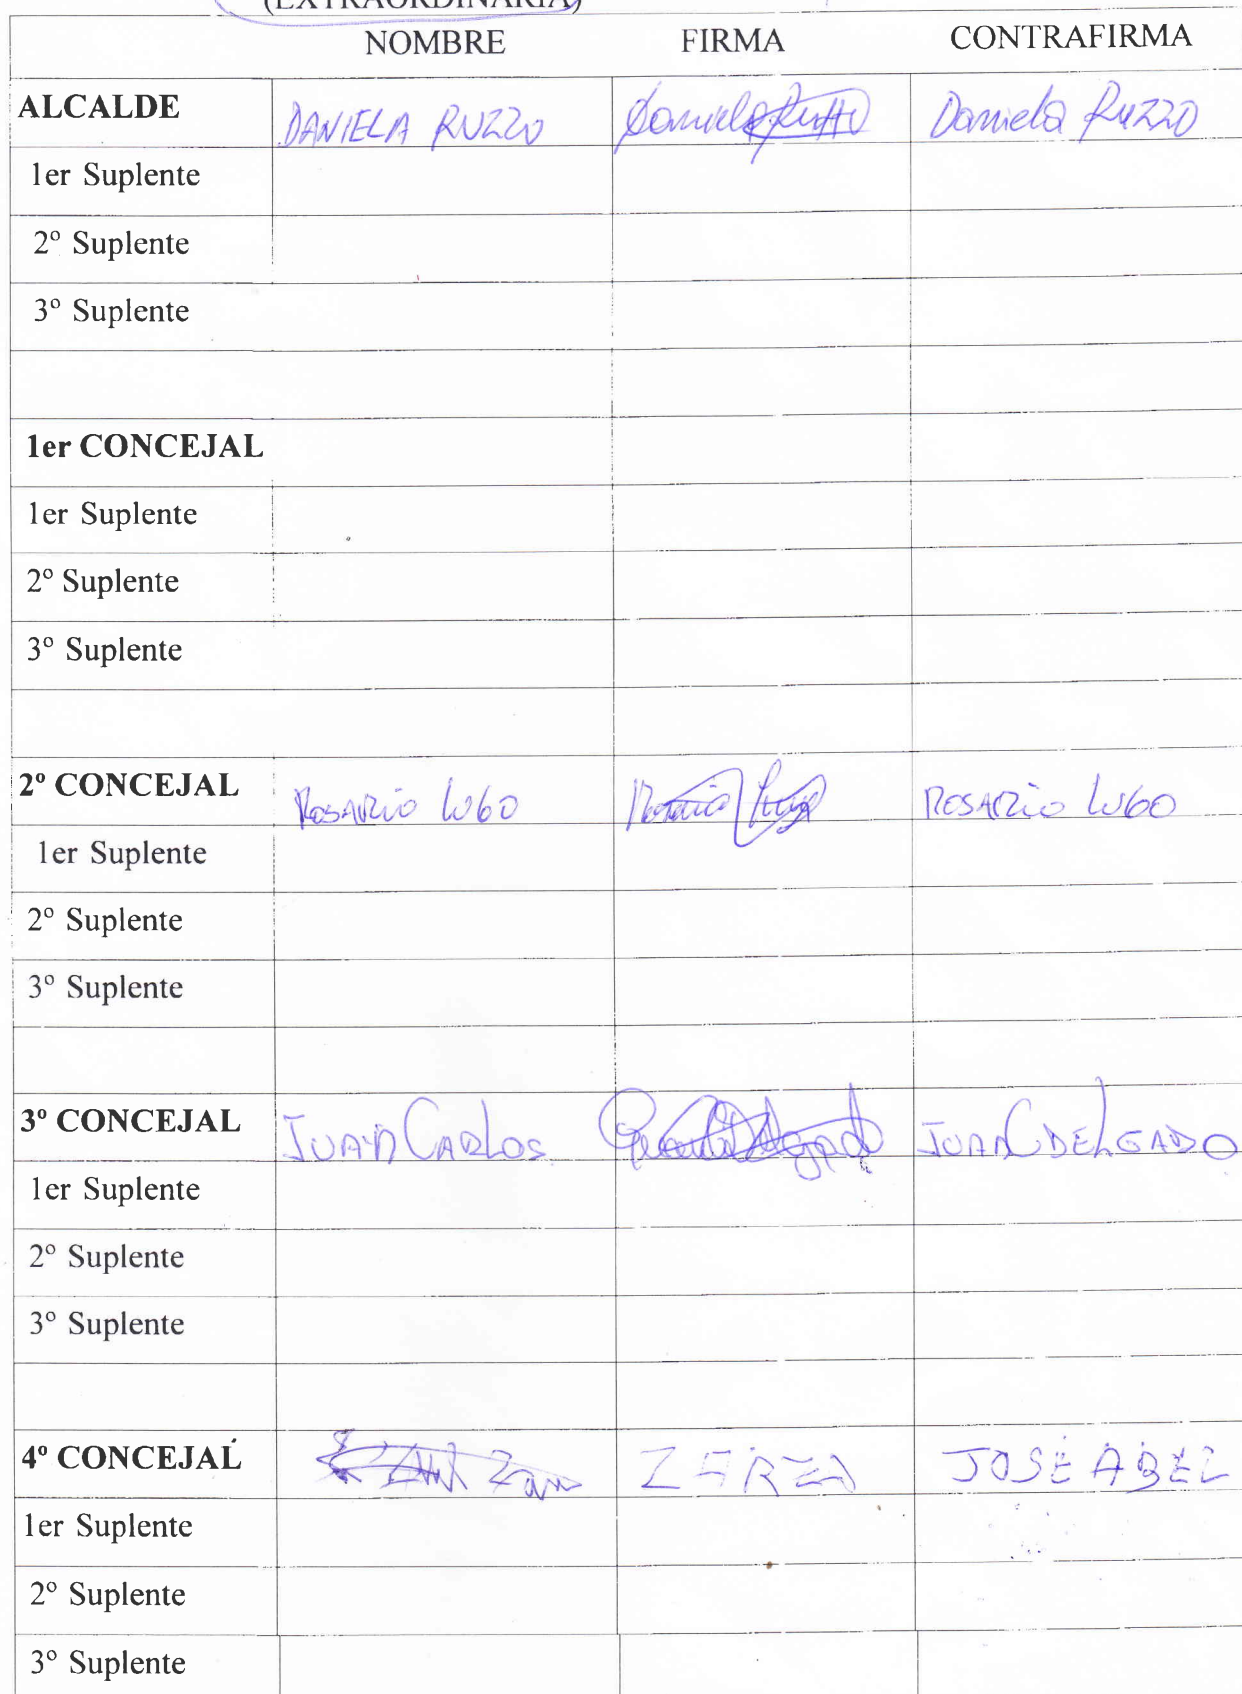 (EXTRAORDINARIA)
NOMBRE FIRMA CONTRAFIRMA
ALCALDE DANIELA RUZZO Daniela Ruzzo Daniela Ruzzo
1er Suplente
2º Suplente
3º Suplente
1er CONCEJAL
1er Suplente
2º Suplente
3º Suplente
2º CONCEJAL ROSARIO LUGO Rosario Lugo ROSARIO LUGO
1er Suplente
2º Suplente
3º Suplente
3º CONCEJAL JUAN CARLOS Delgado JUAN C DELGADO
1er Suplente
2º Suplente
3º Suplente
4º CONCEJAL ZARZA JOSE ABEL
1er Suplente
2º Suplente
3º Suplente